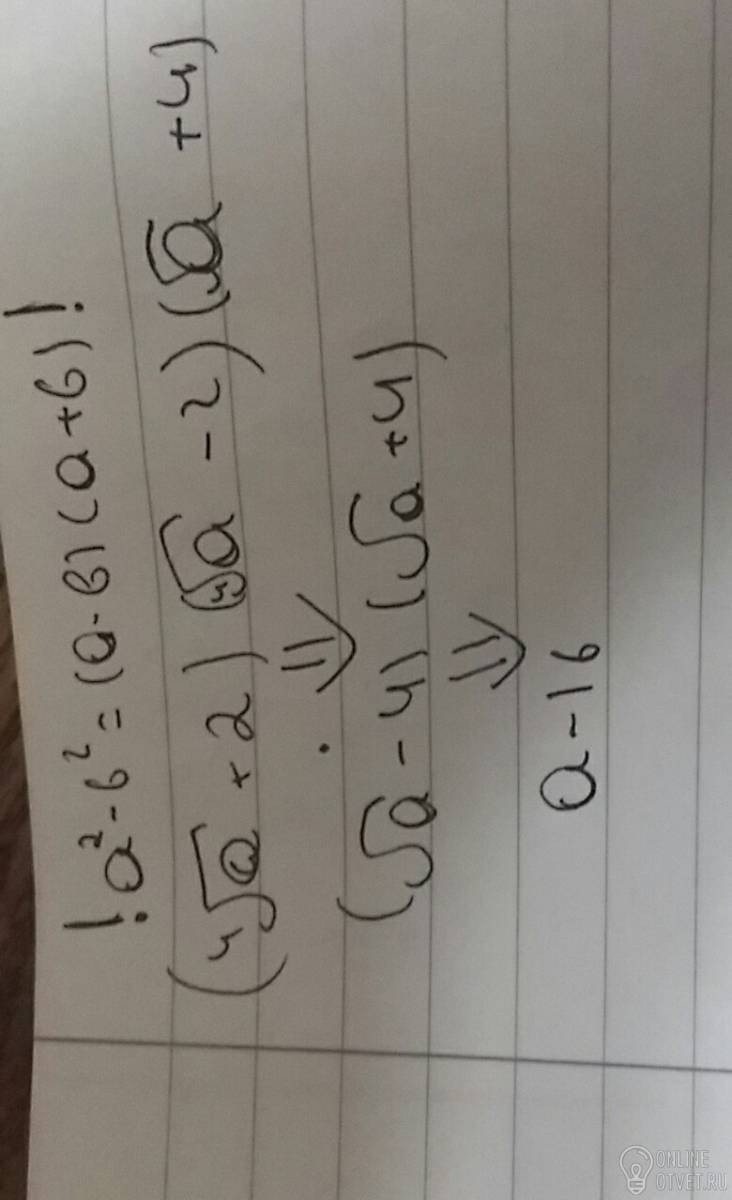 ! a² - b² = (a - b) (a + b) !
(⁴√a + 2) (⁴√a - 2) (√a + 4)
⇓
(√a - 4) (√a + 4)
⇓
a - 16
ONLINE
OTVET.RU